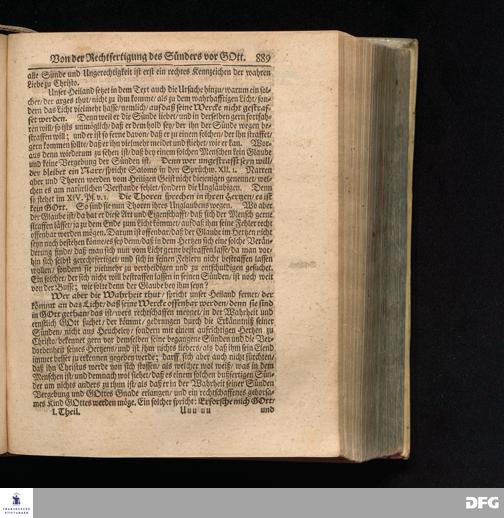 Von der Rechtfertigung des Sünders vor GOtt. 889
alle Sünde und Ungerechtigkeit ist erst ein rechtes Kennzeichen der wahren
Liebe zu Christo.
Unser Heiland setzet in dem Text auch die Ursache hinzu/ warum ein sol-
cher/ der arges thut/ nicht zu ihm komme/ als zu dem wahrhafftigen Licht/ son-
dern das Licht vielmehr hasse/ nemlich/ auf daß seine Wercke nicht gestraf-
fet werden. Denn weil er die Sünde liebet/ und in derselben gern fortfah-
ren will/ so ists unmöglich/ daß er dem hold sey/ der ihn der Sünde wegen be-
straffen will; und er ist so ferne davon/ daß er zu einem solchen/ der ihn straffet/
gern kommen sollte/ daß er ihn vielmehr meidet und fliehet/ wie er kan. Wor-
aus denn wiederum zu sehen ist/ daß bey einem solchen Menschen kein Glaube
und keine Vergebung der Sünden ist. Denn wer ungestrafft seyn will/
der bleibet ein Narr/ spricht Salomo in den Sprüchw. XII. 1. Narren
aber und Thoren werden vom Heiligen Geist nicht diejenigen genennet/ wel-
chen es am natürlichen Verstande fehlet/ sondern die Ungläubigen. Denn
so stehet im XIV. Ps. v. 1. Die Thoren sprechen in ihren Hertzen/ es ist
kein GOtt. So sind sie nun Thoren ihres Unglaubens wegen. Wo aber
der Glaube ist/ da hat er diese Art und Eigenschafft/ daß sich der Mensch gerne
straffen lässet/ ja zu dem Ende zum Licht kommet/ auf daß ihm seine Fehler recht
offenbar werden mögen. Darum ist offenbar/ daß der Glaube im Hertzen nicht
seyn noch bestehen könne/ es sey denn/ daß in dem Hertzen sich eine solche Verän-
derung finde/ daß man sich nun vom Licht gerne bestraffen lasse/ da man vor-
hin sich selbst gerechtfertiget/ und sich in seinen Fehlern nicht bestraffen lassen
wollen/ sondern sie vielmehr zu vertheidigen und zu entschuldigen gesuchet.
Ein solcher/ der sich nicht will bestraffen lassen in seinen Sünden/ ist noch weit
von der Busse; wie solte denn der Glaube bey ihm seyn?
Wer aber die Wahrheit thut/ spricht unser Heiland ferner/ der
kömmt an das Licht/ daß seine Wercke offenbar werden/ denn sie sind
in GOtt gethan/ das ist/ wers rechtschaffen meynet/ in der Wahrheit und
ernstlich GOtt suchet/ der kömmt/ gedrungen durch die Erkäntniß seiner
Sünden/ nicht aus Heucheley/ sondern mit einem aufrichtigen Hertzen zu
Christo/ bekennet gern vor demselben seine begangene Sünden und die Ver-
dorbenheit seines Hertzens/ und ist ihm nichts liebers/ als daß ihm sein Elend
immer besser zu erkennen gegeben werde; darff sich aber auch nicht fürchten/
daß ihn Christus werde von sich stossen/ als welcher wol weiß/ was in dem
Menschen ist/ und demnach wol siehet/ daß es einem solchen bußfertigen Sün-
der um nichts anders zu thun ist/ als daß er in der Wahrheit seiner Sünden
Vergebung und GOttes Gnade erlangen/ und ein rechtschaffenes gehorsa-
mes Kind GOttes werden möge. Ein solcher spricht: Erforsche mich GOtt/
I. Theil. Uuu uu und
FRANCKESCHE
STIFTUNGEN
DFG